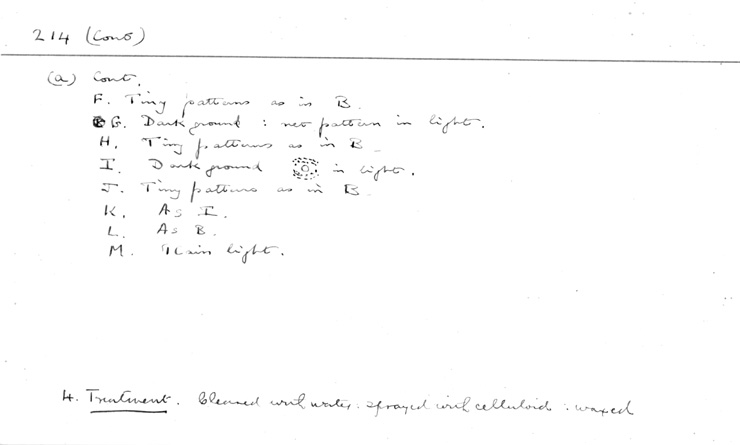 214 (Cont)
(a) Cont.
F. Tiny patterns as in B.
G. Dark ground : net pattern in light.
H. Tiny patterns as in B.
I. Dark ground in light.
J. Tiny patterns as in B.
K. As I.
L. As B.
M. Plain light.
4. Treatment. Cleaned with water : sprayed with celluloid : waxed